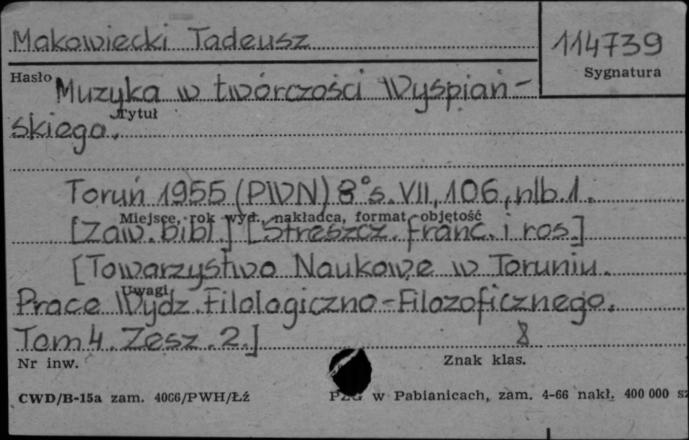 Makowiecki Tadeusz
114739
Hasło
Sygnatura
Muzyka w twórczości Wyspiań-
Tytuł
skiego.
Toruń 1955 (PWN) 8° s. VII, 106, nlb. 1.
Miejsce, rok wyd., nakładca, format, objętość
[Zaw. bibl.] [Streszcz. franc. i ros.]
[Towarzystwo Naukowe w Toruniu.
Uwagi
Prace Wydz. Filologiczno-Filozoficznego.
Tom 4. Zesz. 2.]
8
Nr inw.
Znak klas.
CWD/B-15a zam. 4066/PWH/Łź
PZG w Pabianicach, zam. 4-66 nakł. 400 000